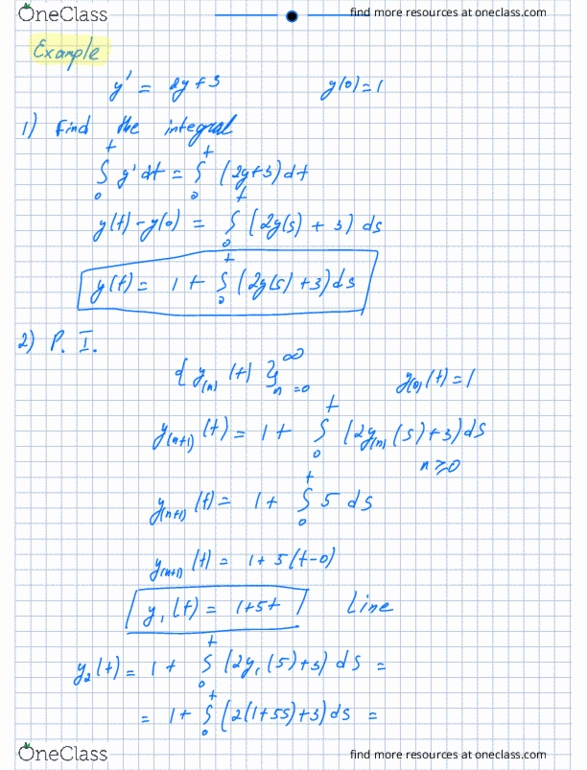 OneClass find more resources at oneclass.com
Example
y' = 2y + 3 y(0) = 1
1) Find the integral
∫₀ᵗ y' dt = ∫₀ᵗ (2y+3) dt
y(t) - y(0) = ∫₀ᵗ (2y(s) + 3) ds
y(t) = 1 + ∫₀ᵗ (2y(s) + 3) ds
2) P. I.
{ y₍ₙ₎ (t) }ₙ₌₀^∞ y₍₀₎ (t) = 1
y₍ₙ₊₁₎ (t) = 1 + ∫₀ᵗ (2y₍ₙ₎ (s) + 3) ds
n ≥ 0
y₍ₙ₊₁₎ (t) = 1 + ∫₀ᵗ 5 ds
y₍ₙ₊₁₎ (t) = 1 + 5(t-0)
y₁ (t) = 1+5t Line
y₂ (t) = 1 + ∫₀ᵗ (2y₁ (s) + 3) ds =
= 1 + ∫₀ᵗ (2(1+5s) + 3) ds =
OneClass find more resources at oneclass.com